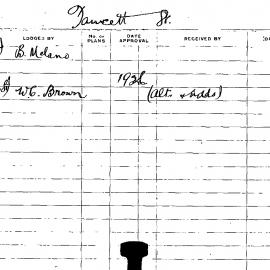 Fawcett St.
LODGED BY No. OF PLANS DATE APPROVAL RECEIVED BY
B. Melano
1928
W.C. Brown (alt. & adds)